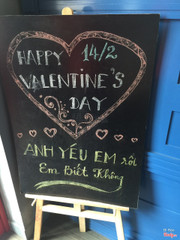 HAPPY 14/2
VALENTINE'S
DAY
ANH YÊU EM rồi
Em Biết Không